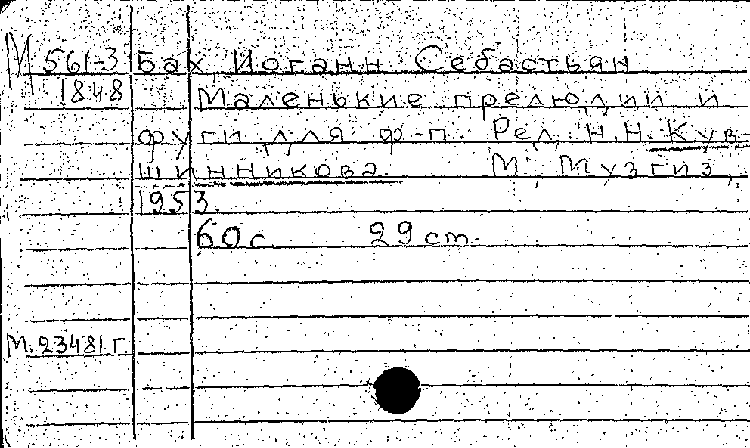 М 561-3 Бах, Иоганн Себастьян
1848 Маленькие прелюдии и
фуги для ф-п. Ред. Н.Н. Кув
шинникова. М., Музгиз,
1953.
60 с. 29 см.
М.23481 г